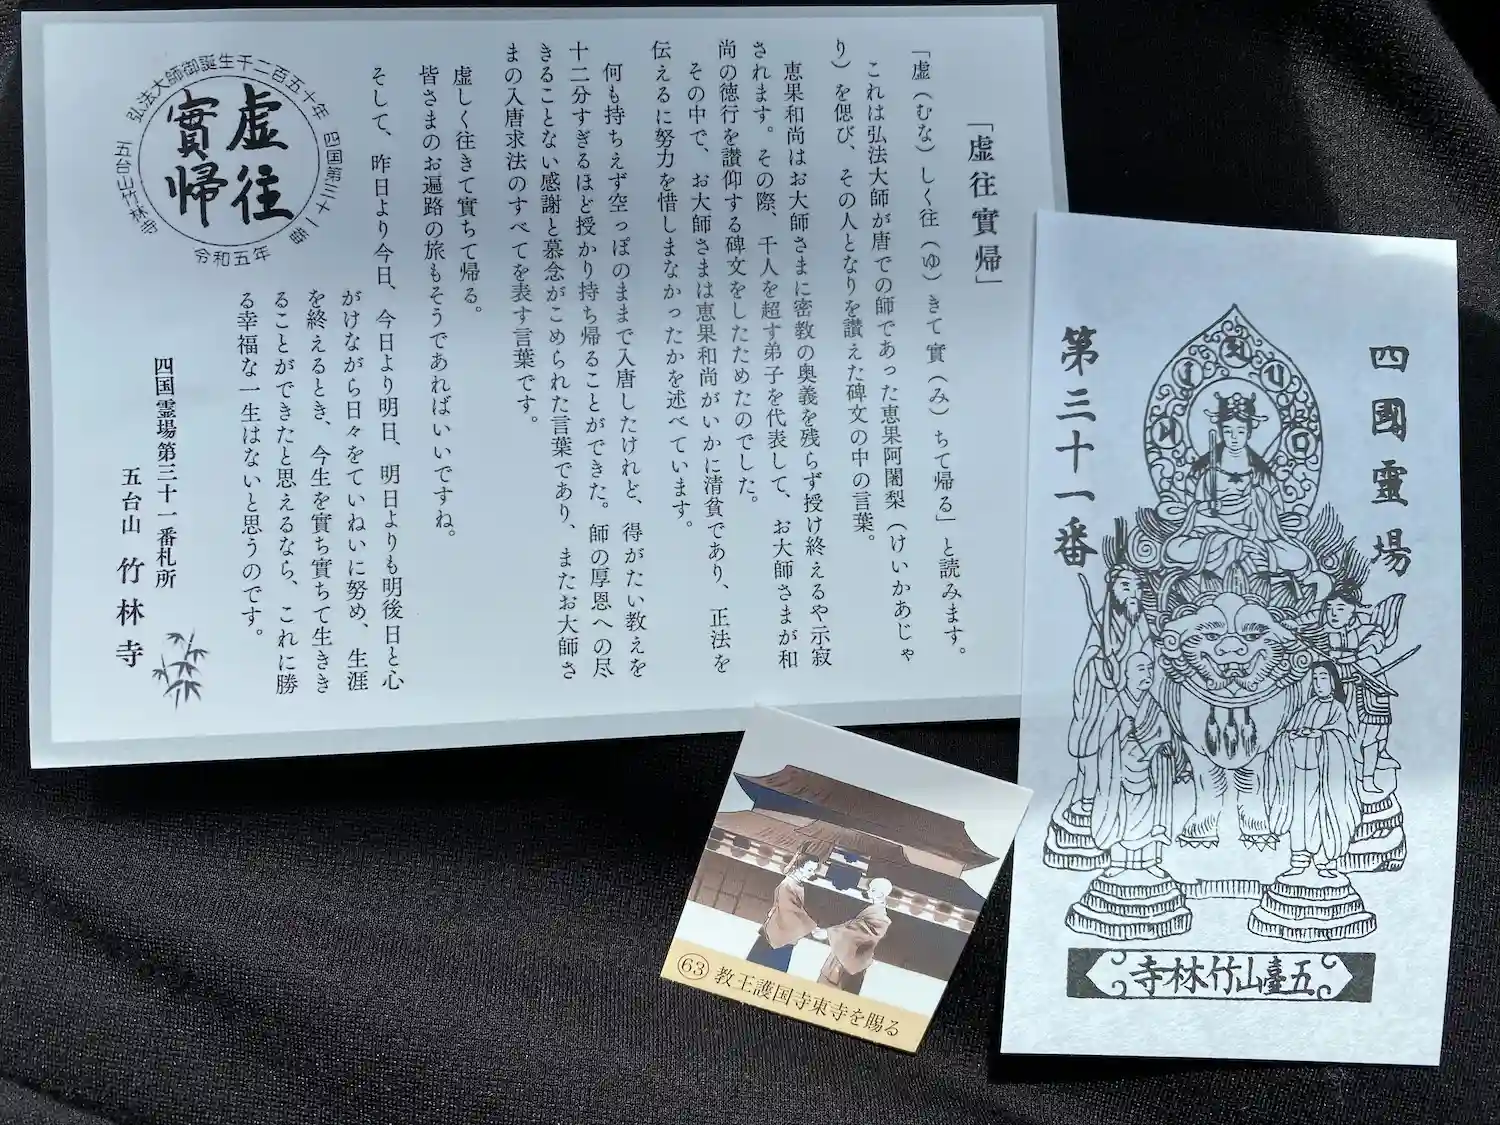 「虚往實帰」
「虚（むな）しく往（ゆ）きて實（み）ちて帰る」と読みます。
これは弘法大師が唐での師であった恵果阿闍梨（けいかあじゃ
り）を偲び、その人となりを讃えた碑文の中の言葉。
恵果和尚はお大師さまに密教の奥義を残らず授け終えるや示寂
されます。その際、千人を超す弟子を代表して、お大師さまが和
尚の徳行を讃仰する碑文をしたためたのでした。
その中で、お大師さまは恵果和尚がいかに清貧であり、正法を
伝えるに努力を惜しまなかったかを述べています。
何も持ちえず空っぽのままで入唐したけれど、得がたい教えを
十二分すぎるほど授かり持ち帰ることができた。師の厚恩への尽
きることない感謝と慕念がこめられた言葉であり、またお大師さ
まの入唐求法のすべてを表す言葉です。
虚しく往きて實ちて帰る。
皆さまのお遍路の旅もそうであればいいですね。
そして、昨日より今日、今日より明日、明日よりも明後日と心
がけながら日々をていねいに努め、生涯
を終えるとき、今生を實ち實ちて生きき
ることができたと思えるなら、これに勝
る幸福な一生はないと思うのです。
四国霊場第三十一番札所
五台山 竹林寺
弘法大師御誕生千二百五十年
四国第三十一番
五台山竹林寺
令和五年
虚往
實帰
四國靈場
第三十一番
五臺山竹林寺
63 教王護国寺東寺を賜る